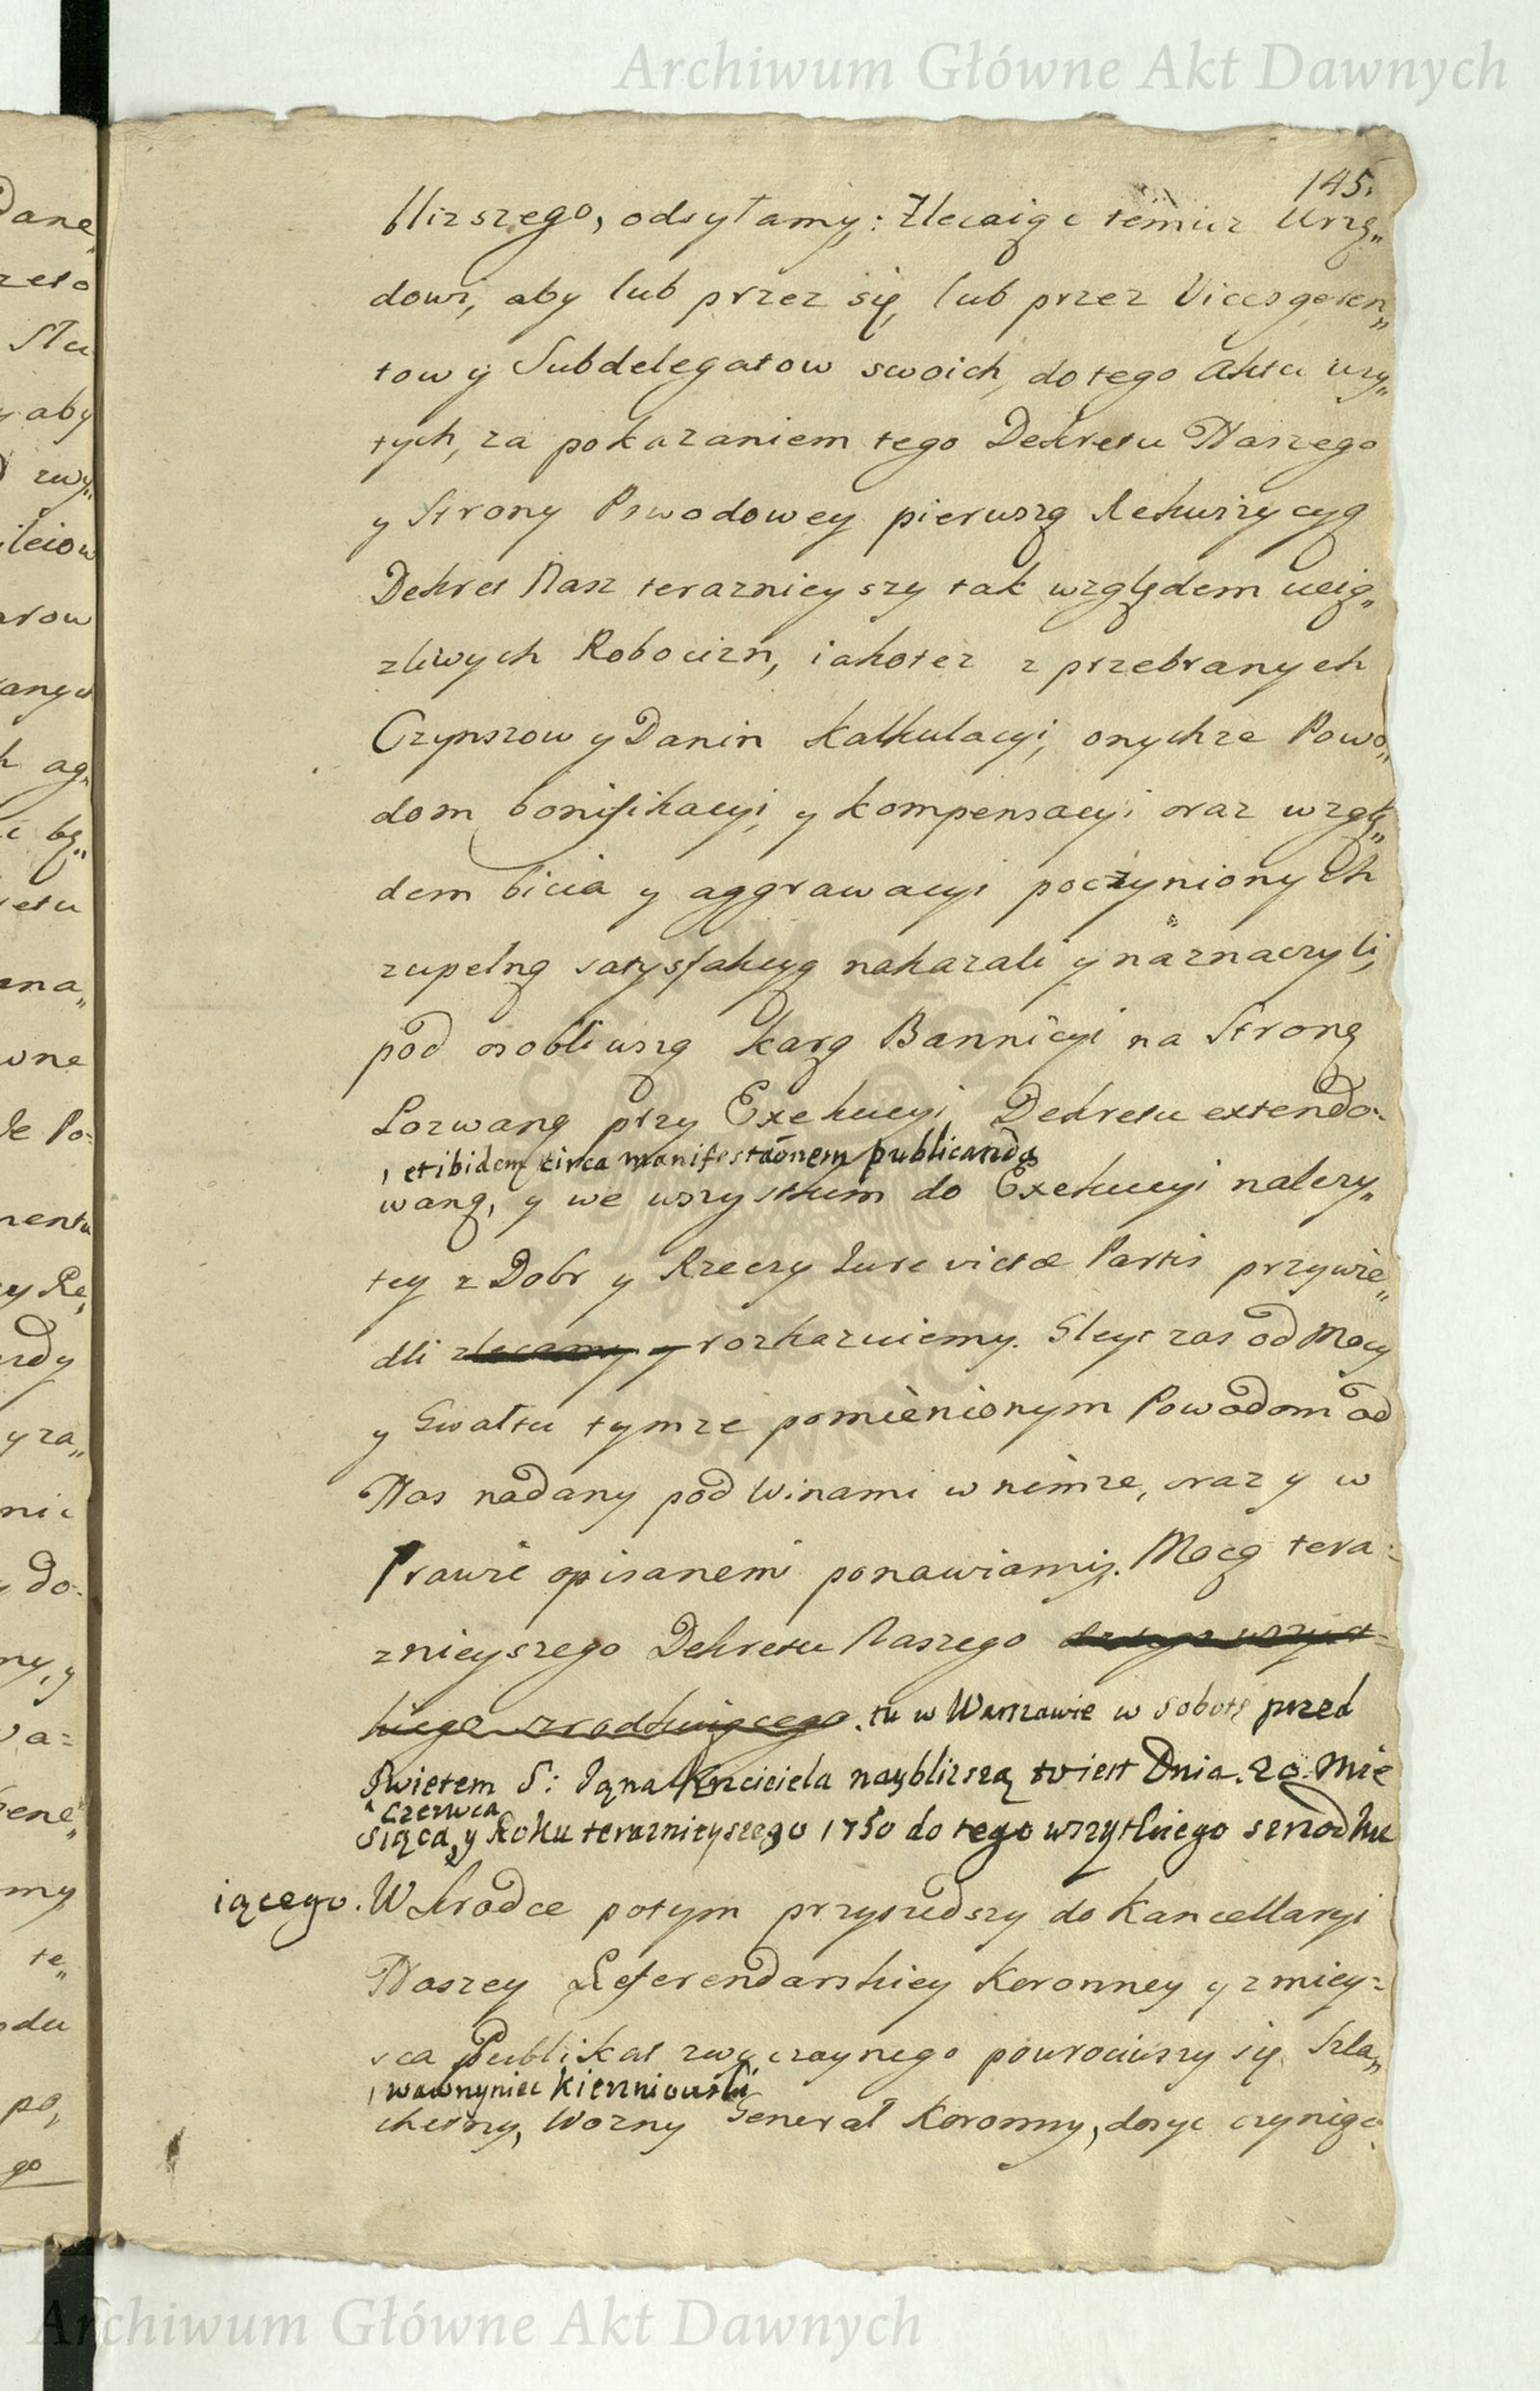 Archiwum Główne Akt Dawnych
145.
bliższego, odsyłamy: Zlecaiąc temuz Urzę„
dowi, aby lub przez się, lub przez Vicesgeren„
tow y Subdelegatow swoich, do tego Aktu uzy„
tych, za pokazaniem tego Dekretu Naszego
y Strony Powodowey pierwszą Rekwizycyą
Dekret Nasz teraznieyszy tak względem ucią„
zliwych Robocizn, iakotez z przebranych
Czynszow y Danin kalkulacyi, onychze Powo„
dom bonifikacyi, y kompensacyi oraz wzglę„
dem bicia y aggrawacyi poczynionych
zupełną satysfakcyą nakazali y naznaczyli,
pod osobliwszą karą Bannicyi na Stronę
Pozwaną przy Exekucyi Dekretu extendo-
, et ibidem circa manifestaõnem publicandą
waną, y we wszystkim do Exekucyi nalezy„
tey z Dobr y Rzeczy Jure victæ Partis przywie„
dli zlecamy y rozkazuiemy. Gleyt zas od Mocy
y Gwałtu tymze pomienionym Powodom od
Nas nadany pod Winami w nimze, oraz y w
Prawie opisanemi ponawiamy. Mocą tera-
znieyszego Dekretu Naszego do tego wszyst-
kiego srzodkuiącego. tu w Warszawie w Sobotę przed
Swietem S: Jana Krzciciela naybliszszą to iest Dnia. 20. Mie
Czerwca
siąca, y Roku teraznieyszego 1750 do tego wszytkiego srzodku
iącego. Wkrodce potym przyszedszy do Kancellaryi
Naszey Referendarskiey Koronney y z miey-
sca Publikat zwyczaynego powrociwszy się Szla„
, Wawrzyniec Kierzniowski
chetny, Wozny Generał Koronny, dosyc czyniąc
Archiwum Główne Akt Dawnych